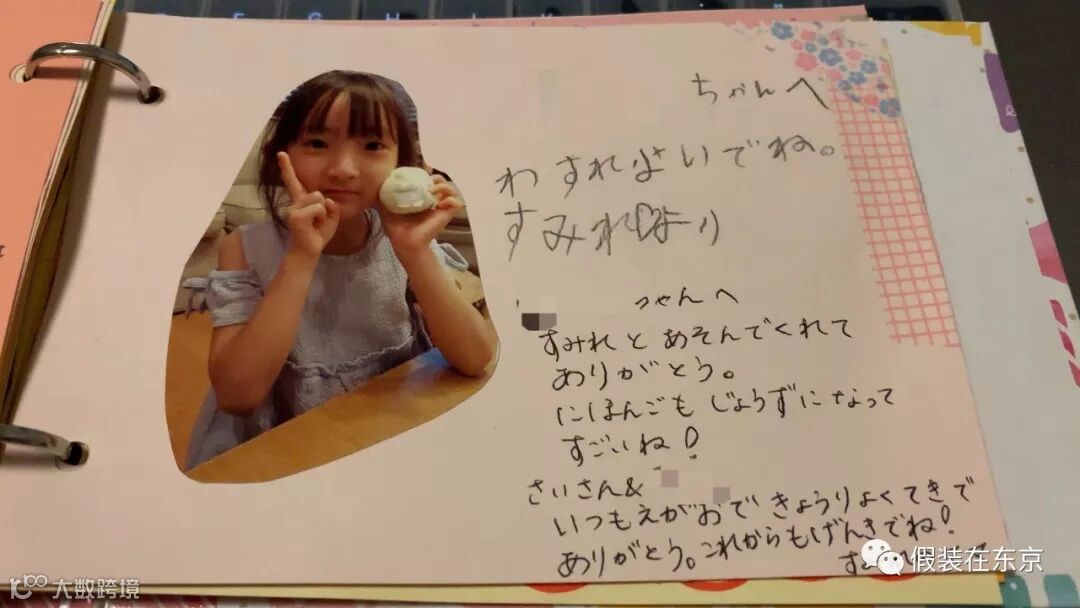 ちゃんへ
わすれないでね。
すみれより
ちゃんへ
すみれとあそんでくれて
ありがとう。
にほんごもじょうずになって
すごいね！
さいさん&
いつもえがおできょうりょくてきで
ありがとう。これからもげんきでね！
假装在东京
大数跨境